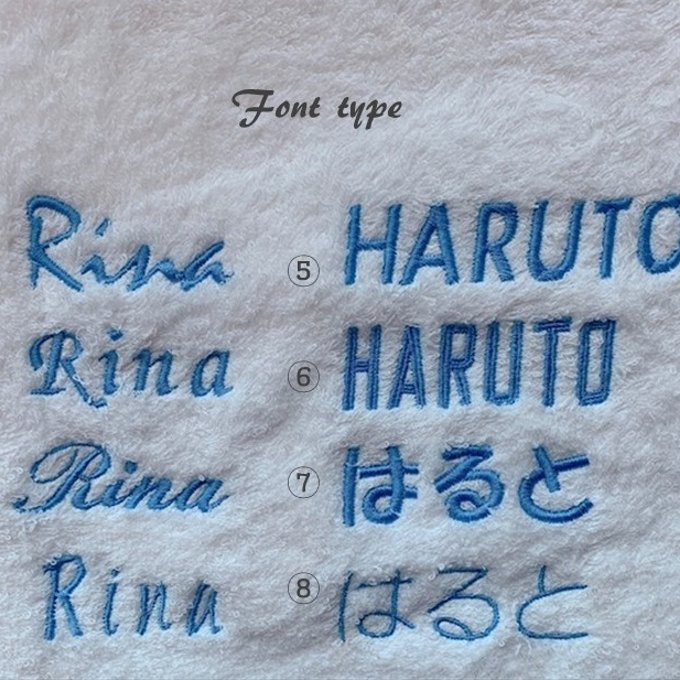 Font type
Rina ⑤ HARUTO
Rina ⑥ HARUTO
Rina ⑦ はると
Rina ⑧ はると